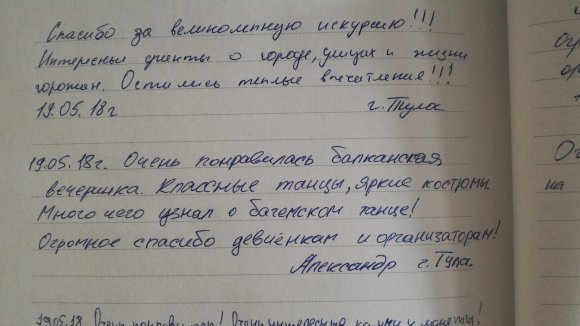 Спасибо за великолепную искурсию!!!
Интересны факты о городе, улицах и жизни
горожан. Остались теплые впечатления!!!
19.05.18г г. Тула
19.05.18г. Очень понравилась балканская
вечеринка. Классные танцы, яркие костюмы
Много чего узнал о богемском танце!
Огромное спасибо девчёнкам и организаторам!
Александр г. Тула.
19.05.18 Очень понравилось! Очень интересные и монеты!
на